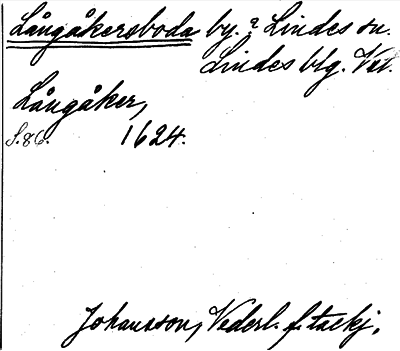 Långåkersboda by. ? Lindes sn.
Lindes blg. Vstl.
Långåker,
S.86. 1624.
Johansson, Vederl. f. tackj.